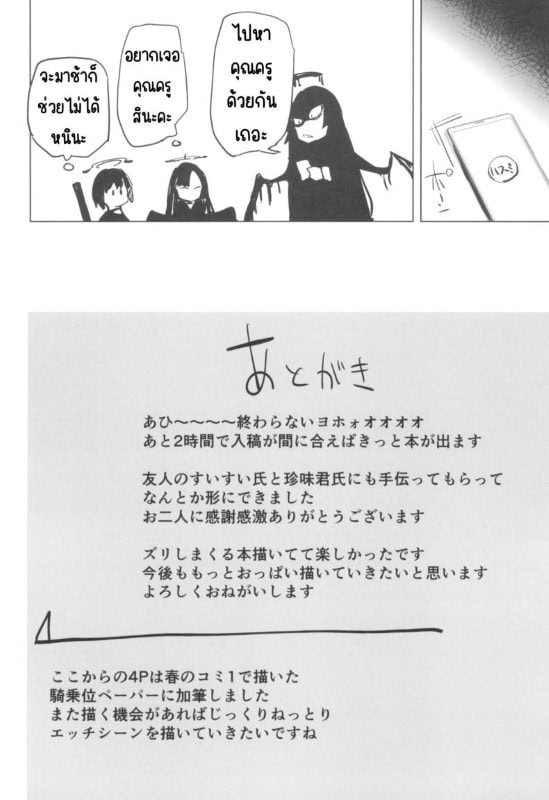 ไปหา
คุณครู
ด้วยกัน
เถอะ
อยากเจอ
คุณครู
สินะคะ
จะมาช้าก็
ช่วยไม่ได้
หนินะ
ハスミ
あとがき
あひ～～～～終わらないヨホォオオオオ
あと2時間で入稿が間に合えばきっと本が出ます
友人のすいすい氏と珍味君氏にも手伝ってもらって
なんとか形にできました
お二人に感謝感激ありがとうございます
ズリしまくる本描いてて楽しかったです
今後ももっとおっぱい描いていきたいと思います
よろしくおねがいします
ここからの4Pは春のコミ1で描いた
騎乗位ペーパーに加筆しました
また描く機会があればじっくりねっとり
エッチシーンを描いていきたいですね